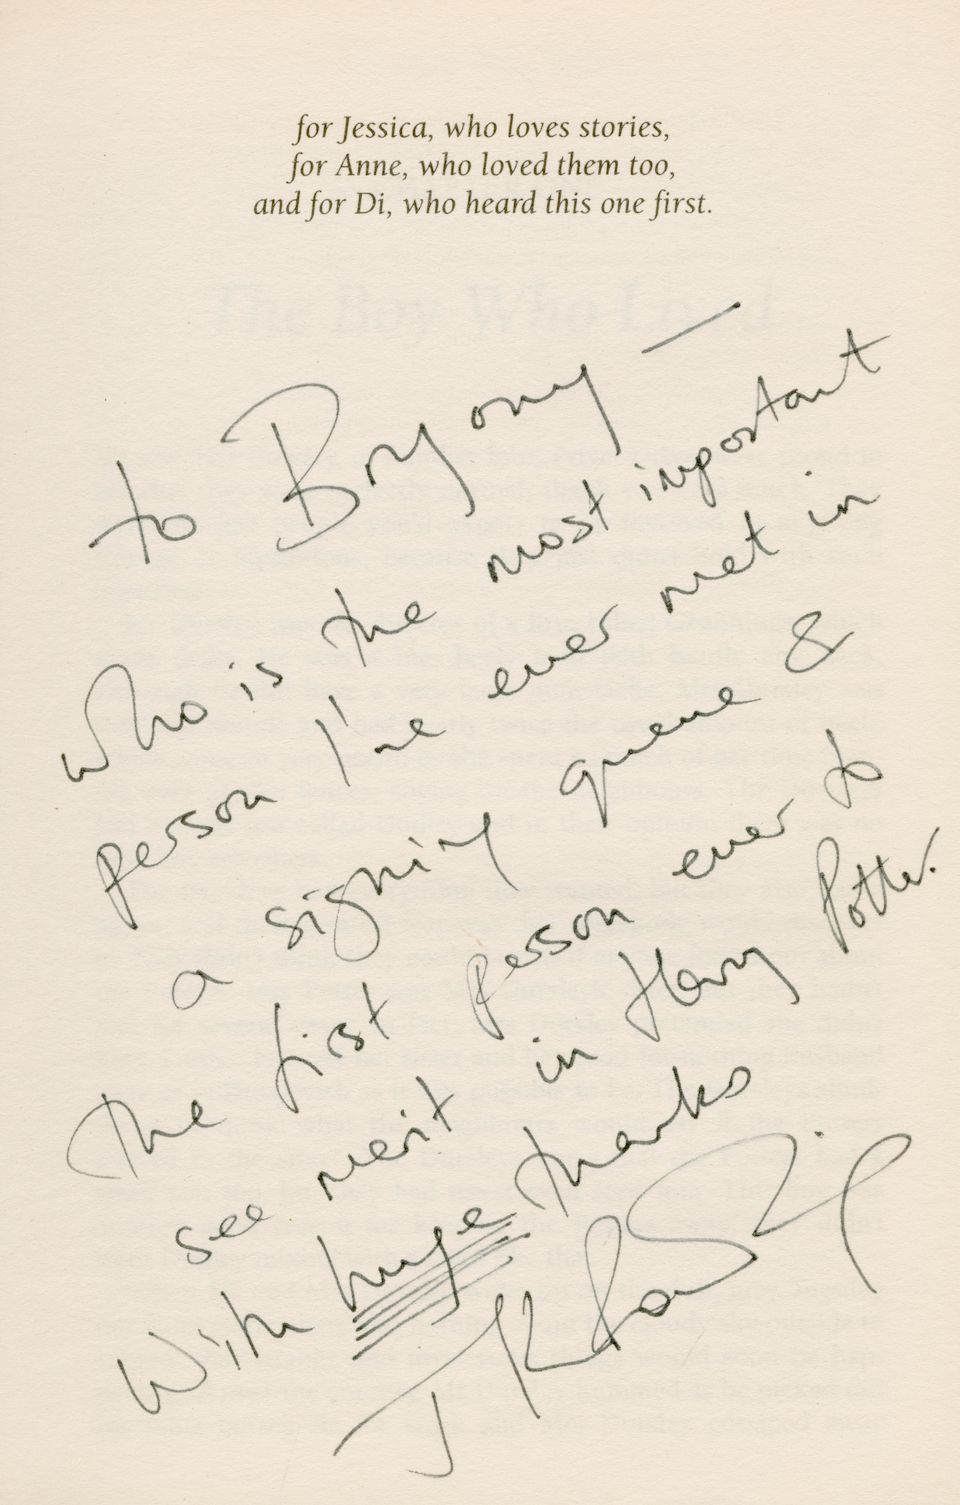 for Jessica, who loves stories,
for Anne, who loved them too,
and for Di, who heard this one first.
The Boy Who Lived
to Bryony —
who is the most important
person I've ever met in
a signing queue &
the first person ever to
see merit in Harry Potter.
With huge thanks
JKRowling